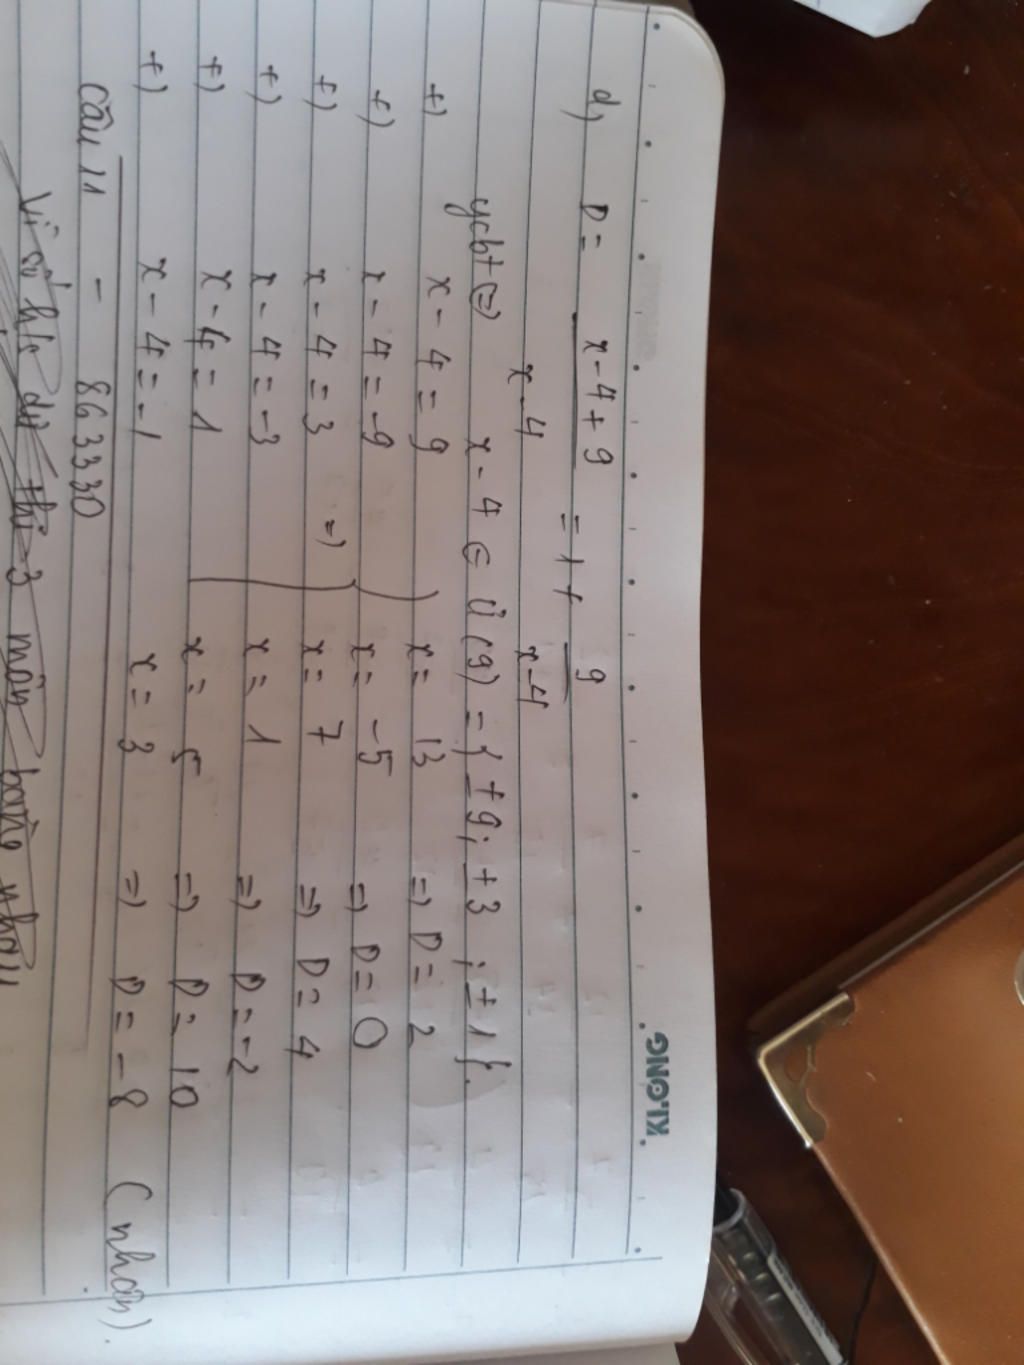 KLONG
d) D = x-4+9 / x-4 = 1 + 9 / x-4
ycbt ⇔ x - 4 ∈ Ư(9) = { ±9; ±3 ; ±1 }.
+) x - 4 = 9 x = 13 => D = 2
+) x - 4 = -9 x = -5 => D = 0
+) x - 4 = 3 => x = 7 => D = 4
+) x - 4 = -3 x = 1 => D = -2
+) x - 4 = 1 x = 5 => D = 10
+) x - 4 = -1 x = 3 => D = -8 (nhận).
Câu 11 - 863330
Vì số h/s dự thi 3 môn bằng nhau